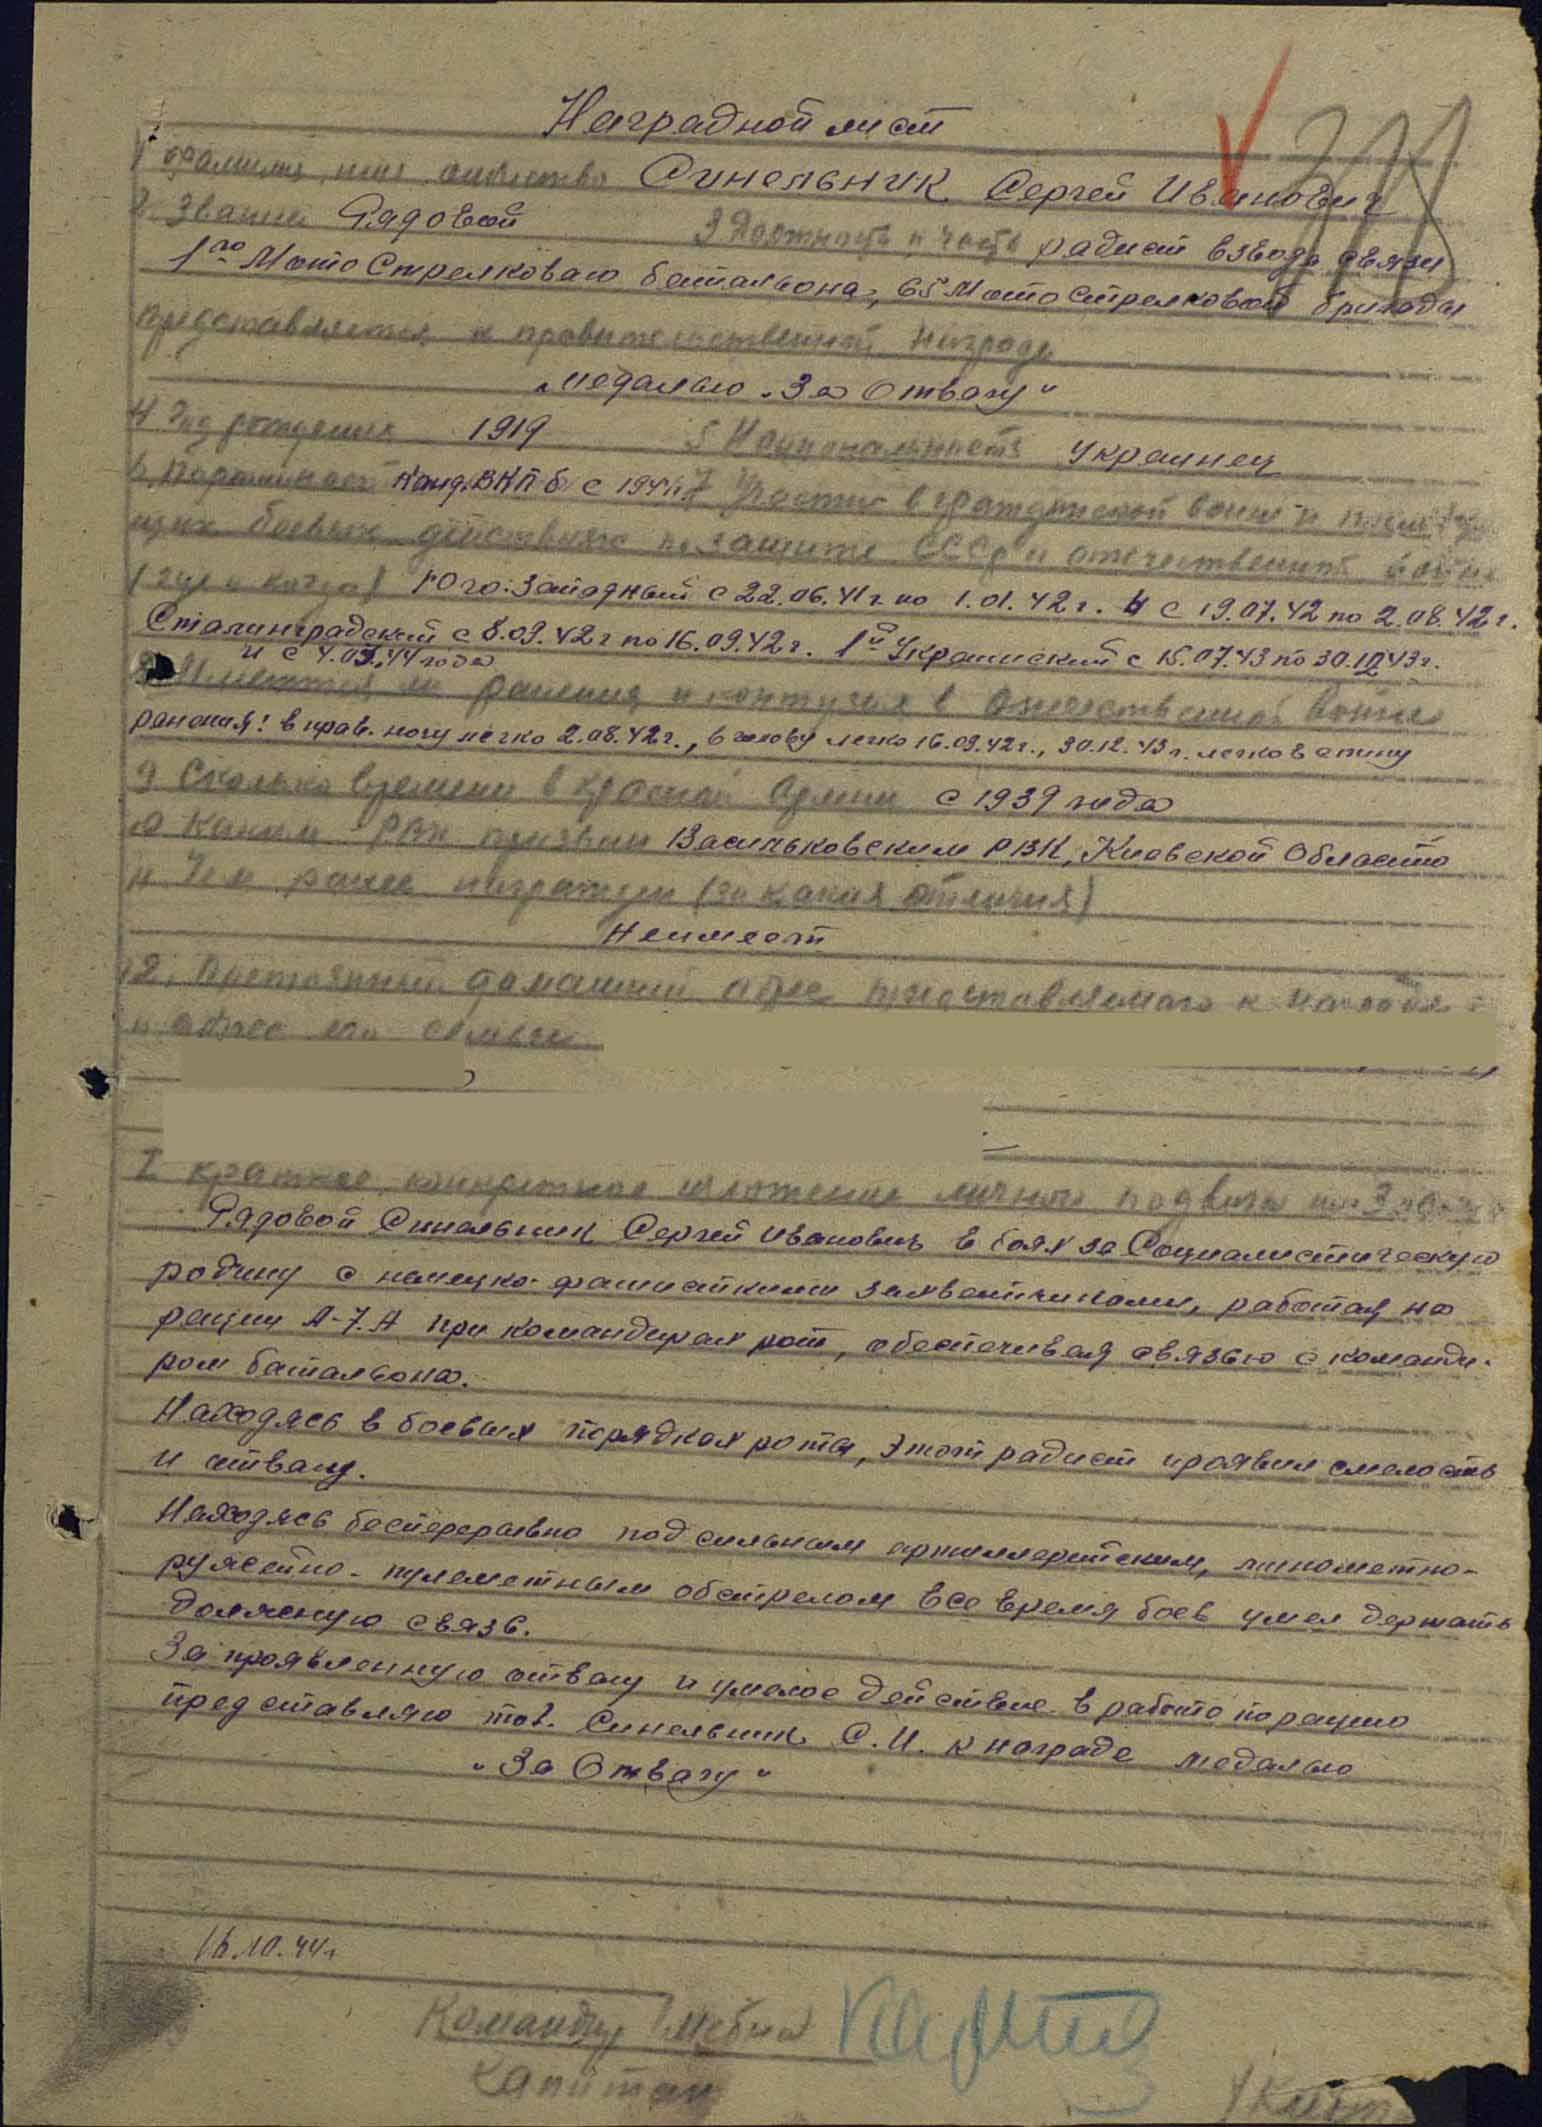 Наградной лист
1 Фамилия, имя, отчество Синельник Сергей Иванович
2. Звание Рядовой 3 Должность и часть радист взвода связи
1го МотоСтрелковаго баталиона, 65 МотоСтрелковой бригады
представляется к правительственной награде
„медалью „За Отвагу“
4 Год рождения 1919 5 Национальность украинец
6, Партийность Канд. ВКП б с 1944 7 Участие в гражданской войне и последую
щих боевых действиях по защите СССР и отечественной войне
(где и когда) Юго-Западный с 22.06.41г. по 1.01.42г. и с 19.07.42 по 2.08.42г.
Сталинградский с 8.09.42г по 16.09.42г. 1й Украинский с 15.07.43 по 30.12.43г.
и с 4.09.44 года
8 Имеются ли ранения и контузия в Отечественной войне
ранения: в прав. ногу легко 2.08.42г., в голову легко 16.09.42г., 30.12.43г. легко в спину
9 Сколько времени в красной армии с 1939 года
10 Каким РВК призван Васильковским РВК, Киевской Область
11 Чем ранее награжден (за какия отличия)
Неимеет
12, Постоянный домашний адрес представляемого к награде
и адрес его семьи
I краткое, конкретное изложение личного подвига или
Рядовой Синельник Сергей Иванович в боях за Социалистическую
родину с немецко-фашисткими захватчиками, работая на
рации А-7.А при командирах рот, обеспечивал связью с команди-
ром баталиона.
Находясь в боевых порядках роты, этот радист проявил смелость
и отвагу.
Находясь беспрерывно под сильным артиллерийским, минометно-
ружейно-пулеметным обстрелом все время боев умел держать
должную связь.
За проявленную отвагу и умелое действие в работе по рацию
представляю тов. Синельник С.И. к награде медалью
„За Отвагу“
16.10.44г
Командир 1 мсбна
Капитан